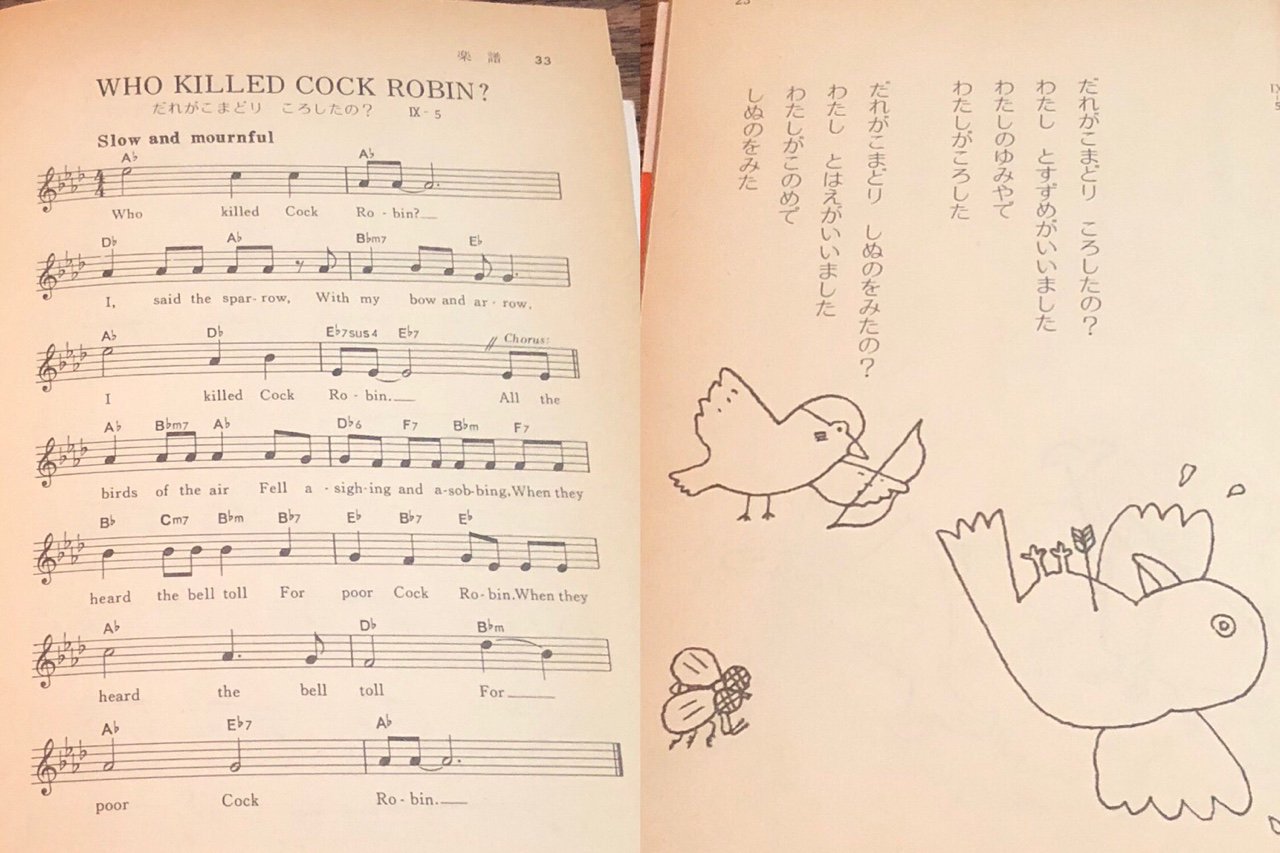 楽譜 33
WHO KILLED COCK ROBIN?
だれがこまどり ころしたの? Ⅸ-5
Slow and mournful
A♭ A♭
Who killed Cock Ro-bin?
D♭ A♭ B♭m7 E♭
I, said the spar-row, With my bow and ar-row.
A♭ D♭ E♭7sus4 E♭7 Chorus:
I killed Cock Ro-bin. All the
A♭ B♭m7 A♭ D♭6 F7 B♭m F7
birds of the air Fell a-sigh-ing and a-sob-bing, When they
B♭ Cm7 B♭m B♭7 E♭ B♭7 E♭
heard the bell toll For poor Cock Ro-bin. When they
A♭ D♭ B♭m
heard the bell toll For
A♭ E♭7 A♭
poor Cock Ro-bin.
だれがこまどり ころしたの?
わたし とすずめがいいました
わたしのゆみやで
わたしがころした
だれがこまどり しぬのをみたの?
わたし とはえがいいました
わたしがこのめで
しぬのをみた